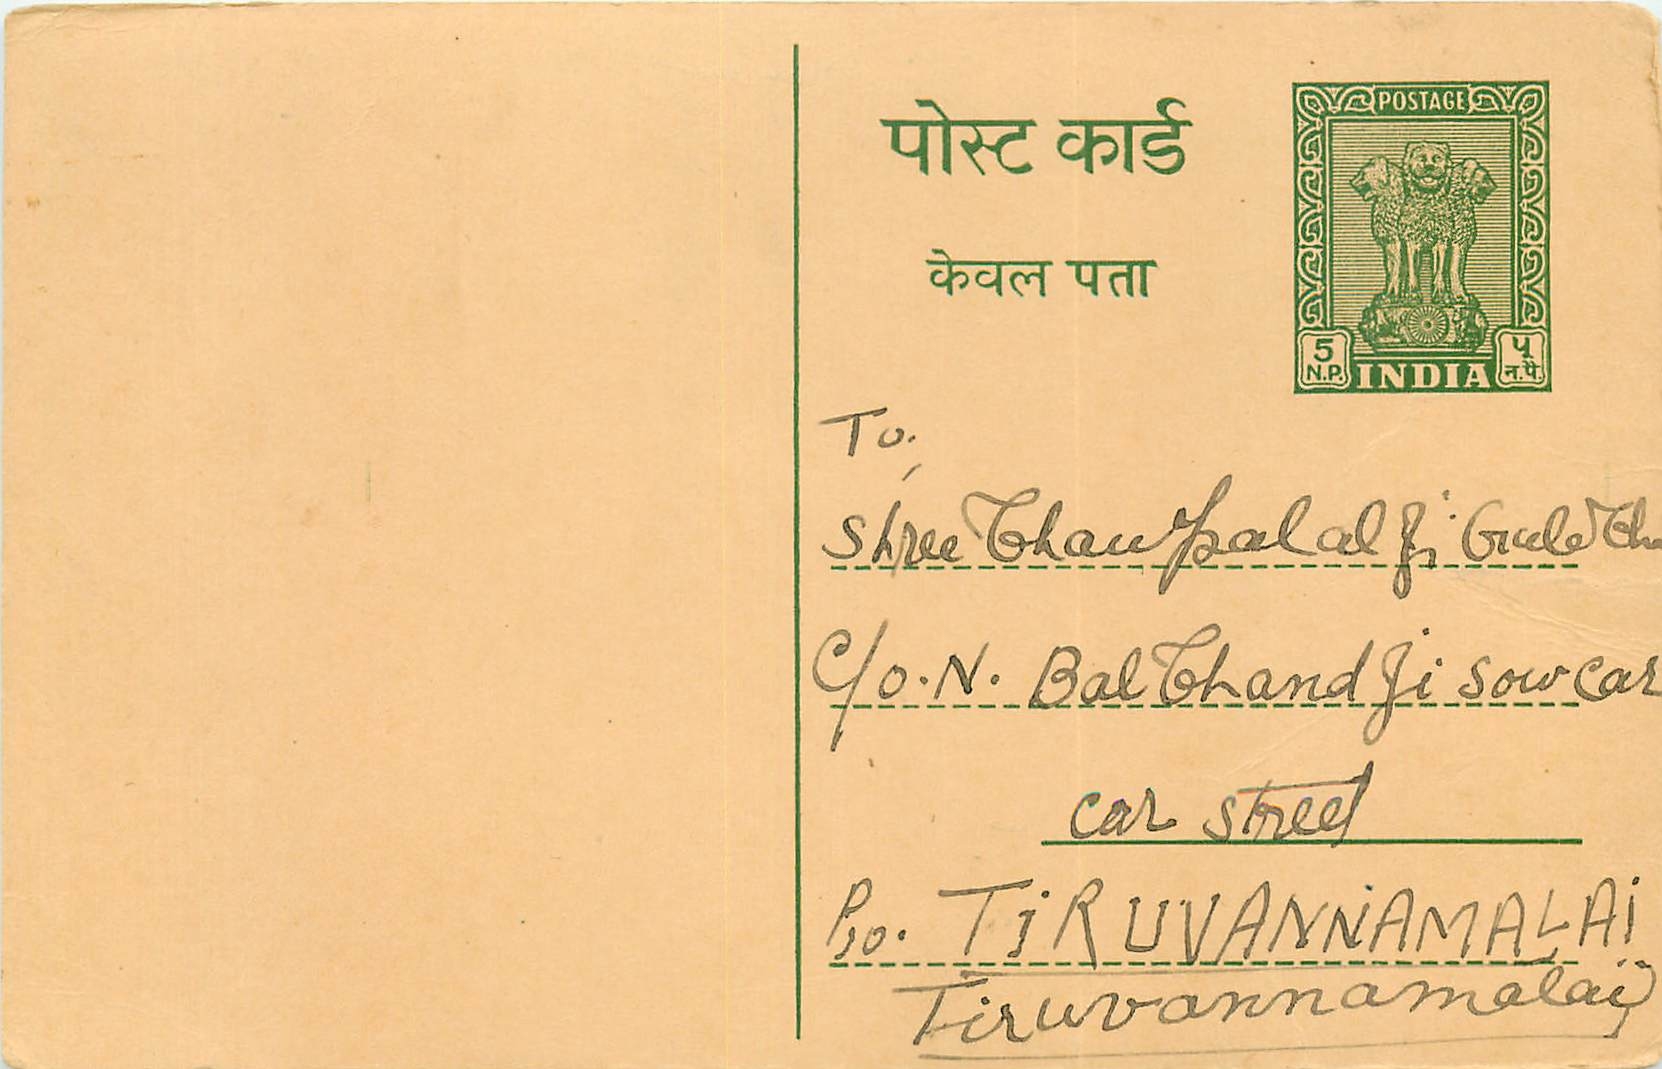 पोस्ट कार्ड
केवल पता
POSTAGE
5 N.P.
INDIA
५ न.पै.
To,
Shree Ji
C/o. N. BalChand Ji Sowcar
Car Street
Po. TiRUVANNAMALAi
Tiruvannamalai